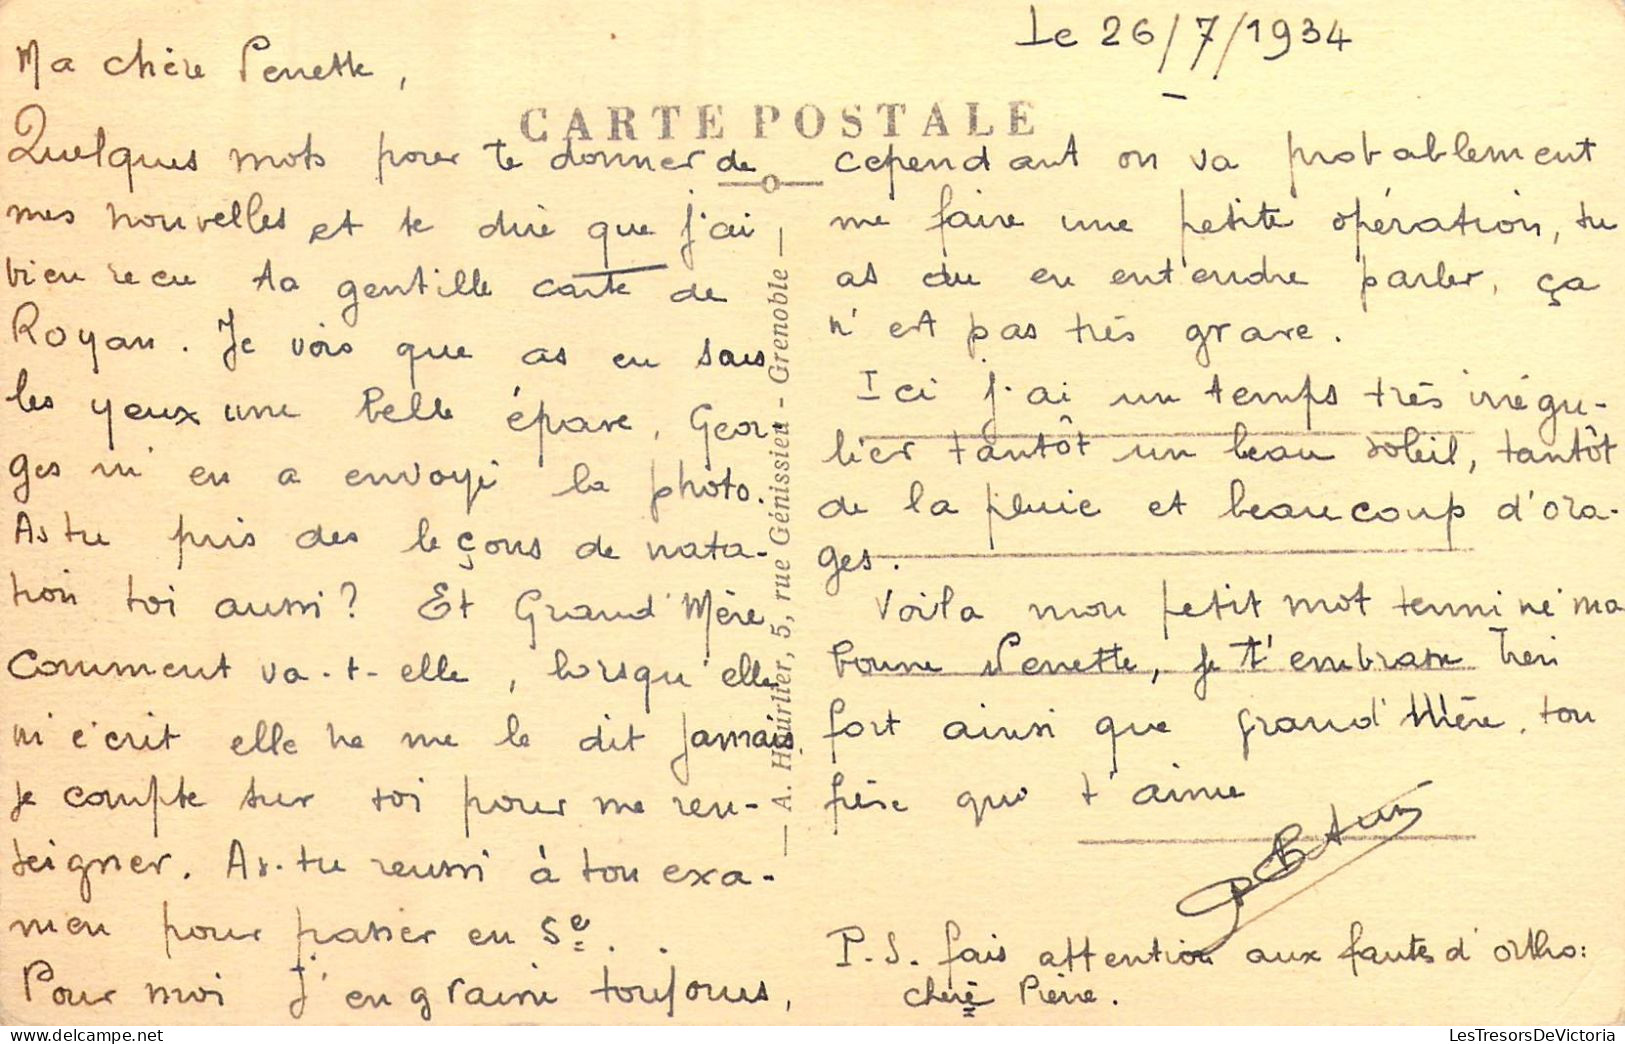 Le 26/7/1934
Ma chère Penette,
CARTE POSTALE
Quelques mots pour te donner de
mes nouvelles et te dire que j'ai
bien recu ta gentille carte de
Royan. Je vois que as eu sous
les yeux une belle épave, Geor-
ges m'en a envoyé la photo.
As tu pris des leçons de nata-
tion toi aussi? Et Grand'Mère
comment va-t-elle, lorsqu'elle
m'écrit elle ne me le dit jamais
je compte sur toi pour me ren-
seigner. As-tu reussi à ton exa-
men pour passer en 5e..
Pour moi j'engraine toujours,
— A. Hourlier, 5, rue Génissieu - Grenoble —
cependant on va probablement
me faire une petite opération, tu
as du en entendre parler, ça
n'est pas très grave.
Ici j'ai un temps très irrégu-
lier tantôt un beau soleil, tantôt
de la pluie et beaucoup d'ora-
ges.
Voila mon petit mot terminé ma
bonne Penette, je t'embrasse bien
fort ainsi que grand'Mère. ton
frère qui t'aime
P.S. fais attention aux fautes d'ortho:
chère Pierre.
LesTresorsDeVictoria